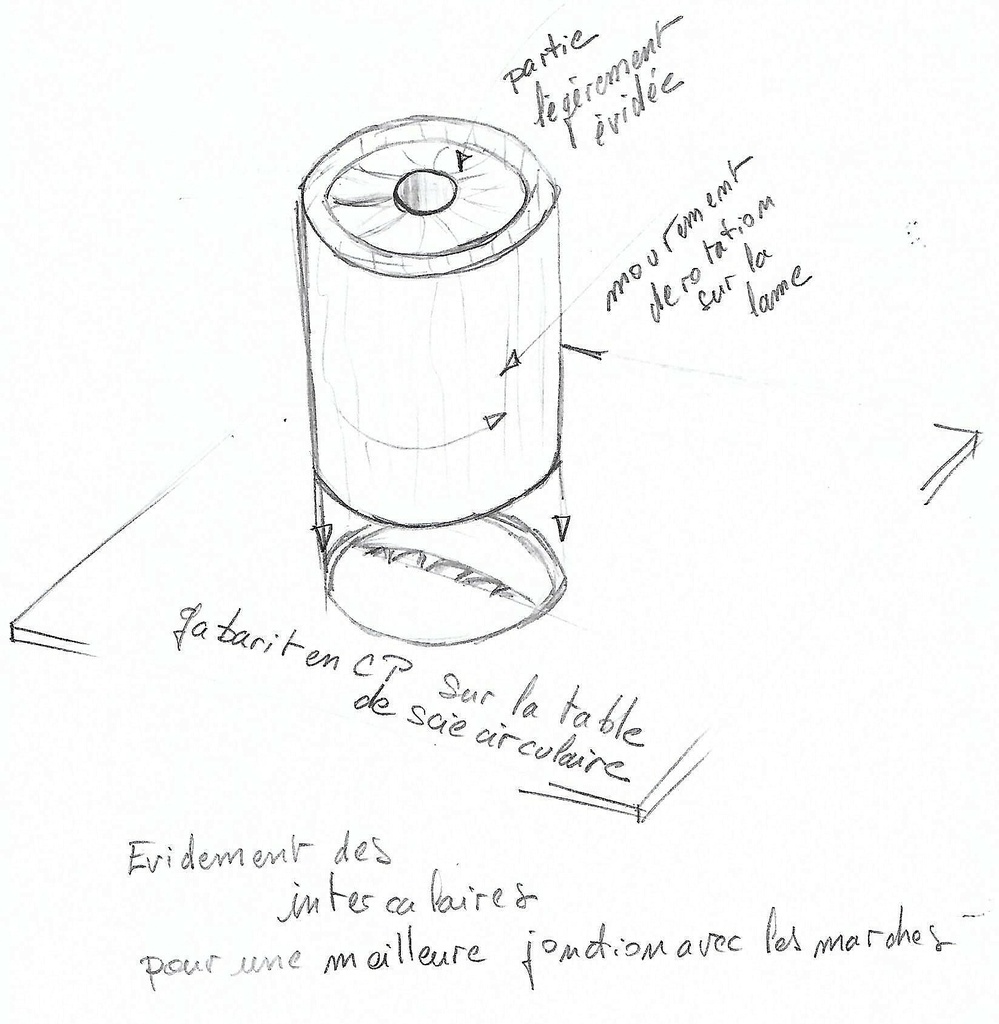 partie
légèrement
évidée
mouvement
de rotation
sur la
lame
gabarit en CP sur la table
de scie circulaire
Evidement des
intercalaires
pour une meilleure jonction avec les marches